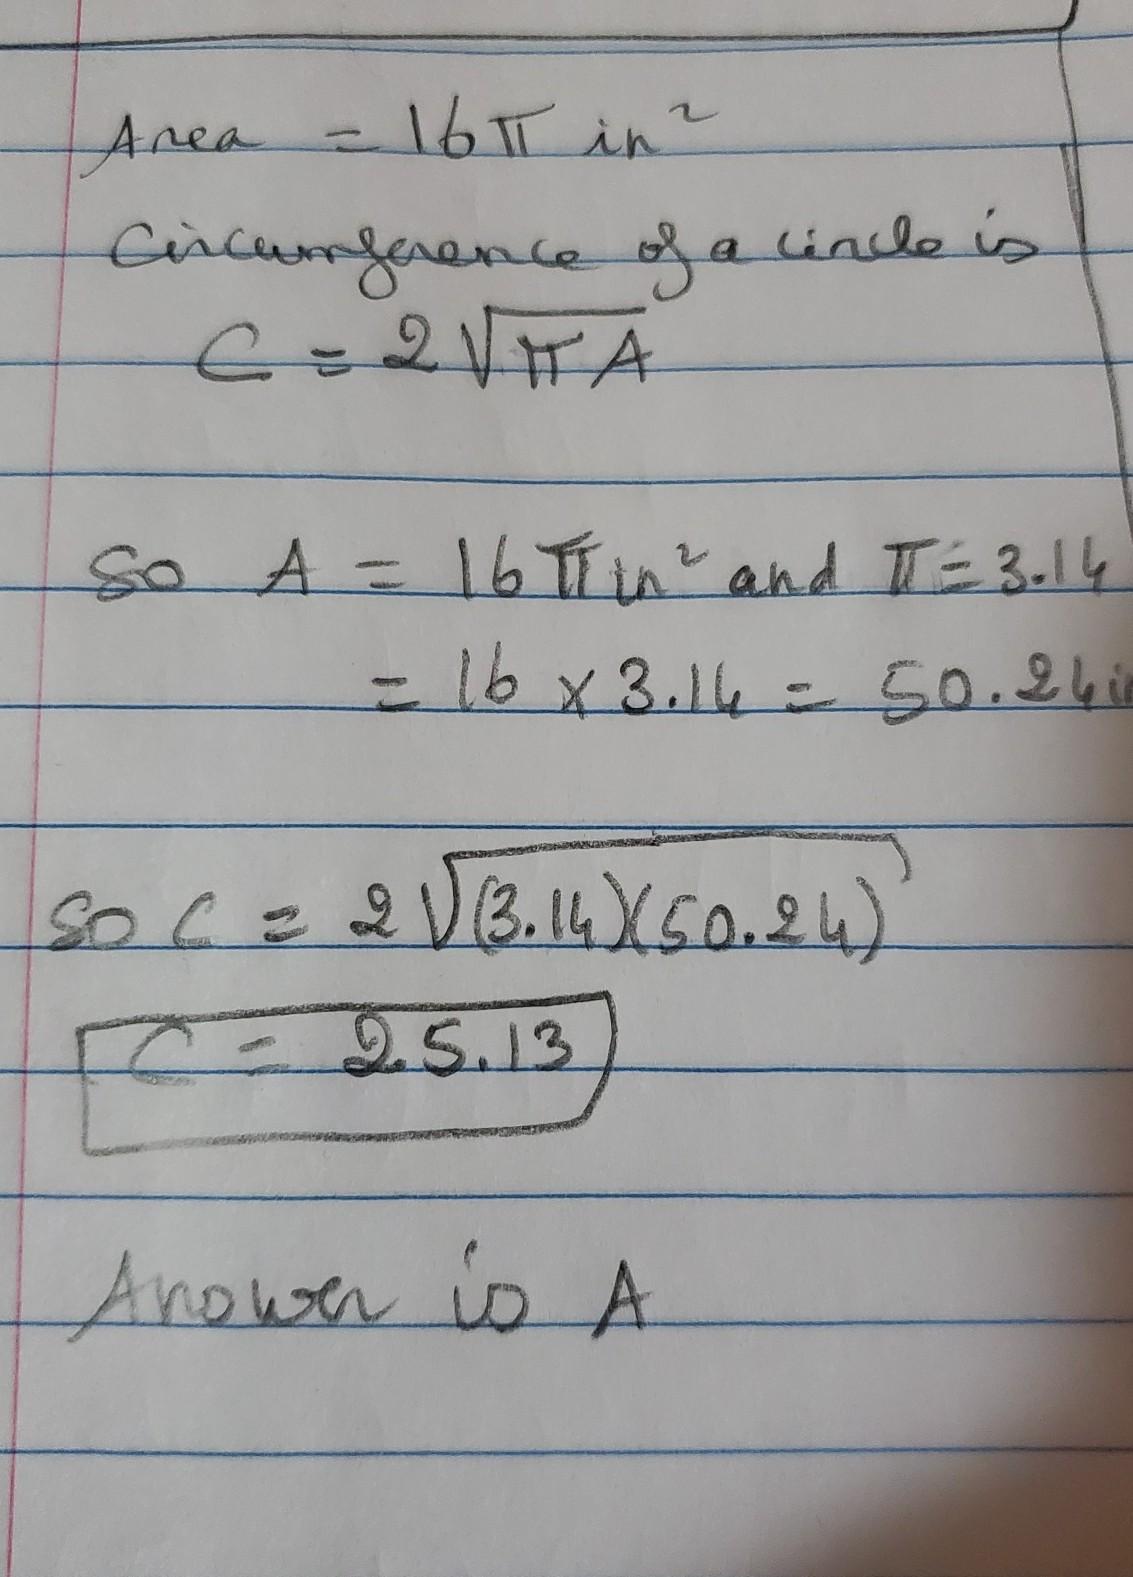 Area = 16π in²
Circumference of a circle is
C = 2√πA
So A = 16πin² and π = 3.14
= 16 × 3.14 = 50.24i
So C = 2√(3.14)(50.24)
C = 25.13
Answer is A